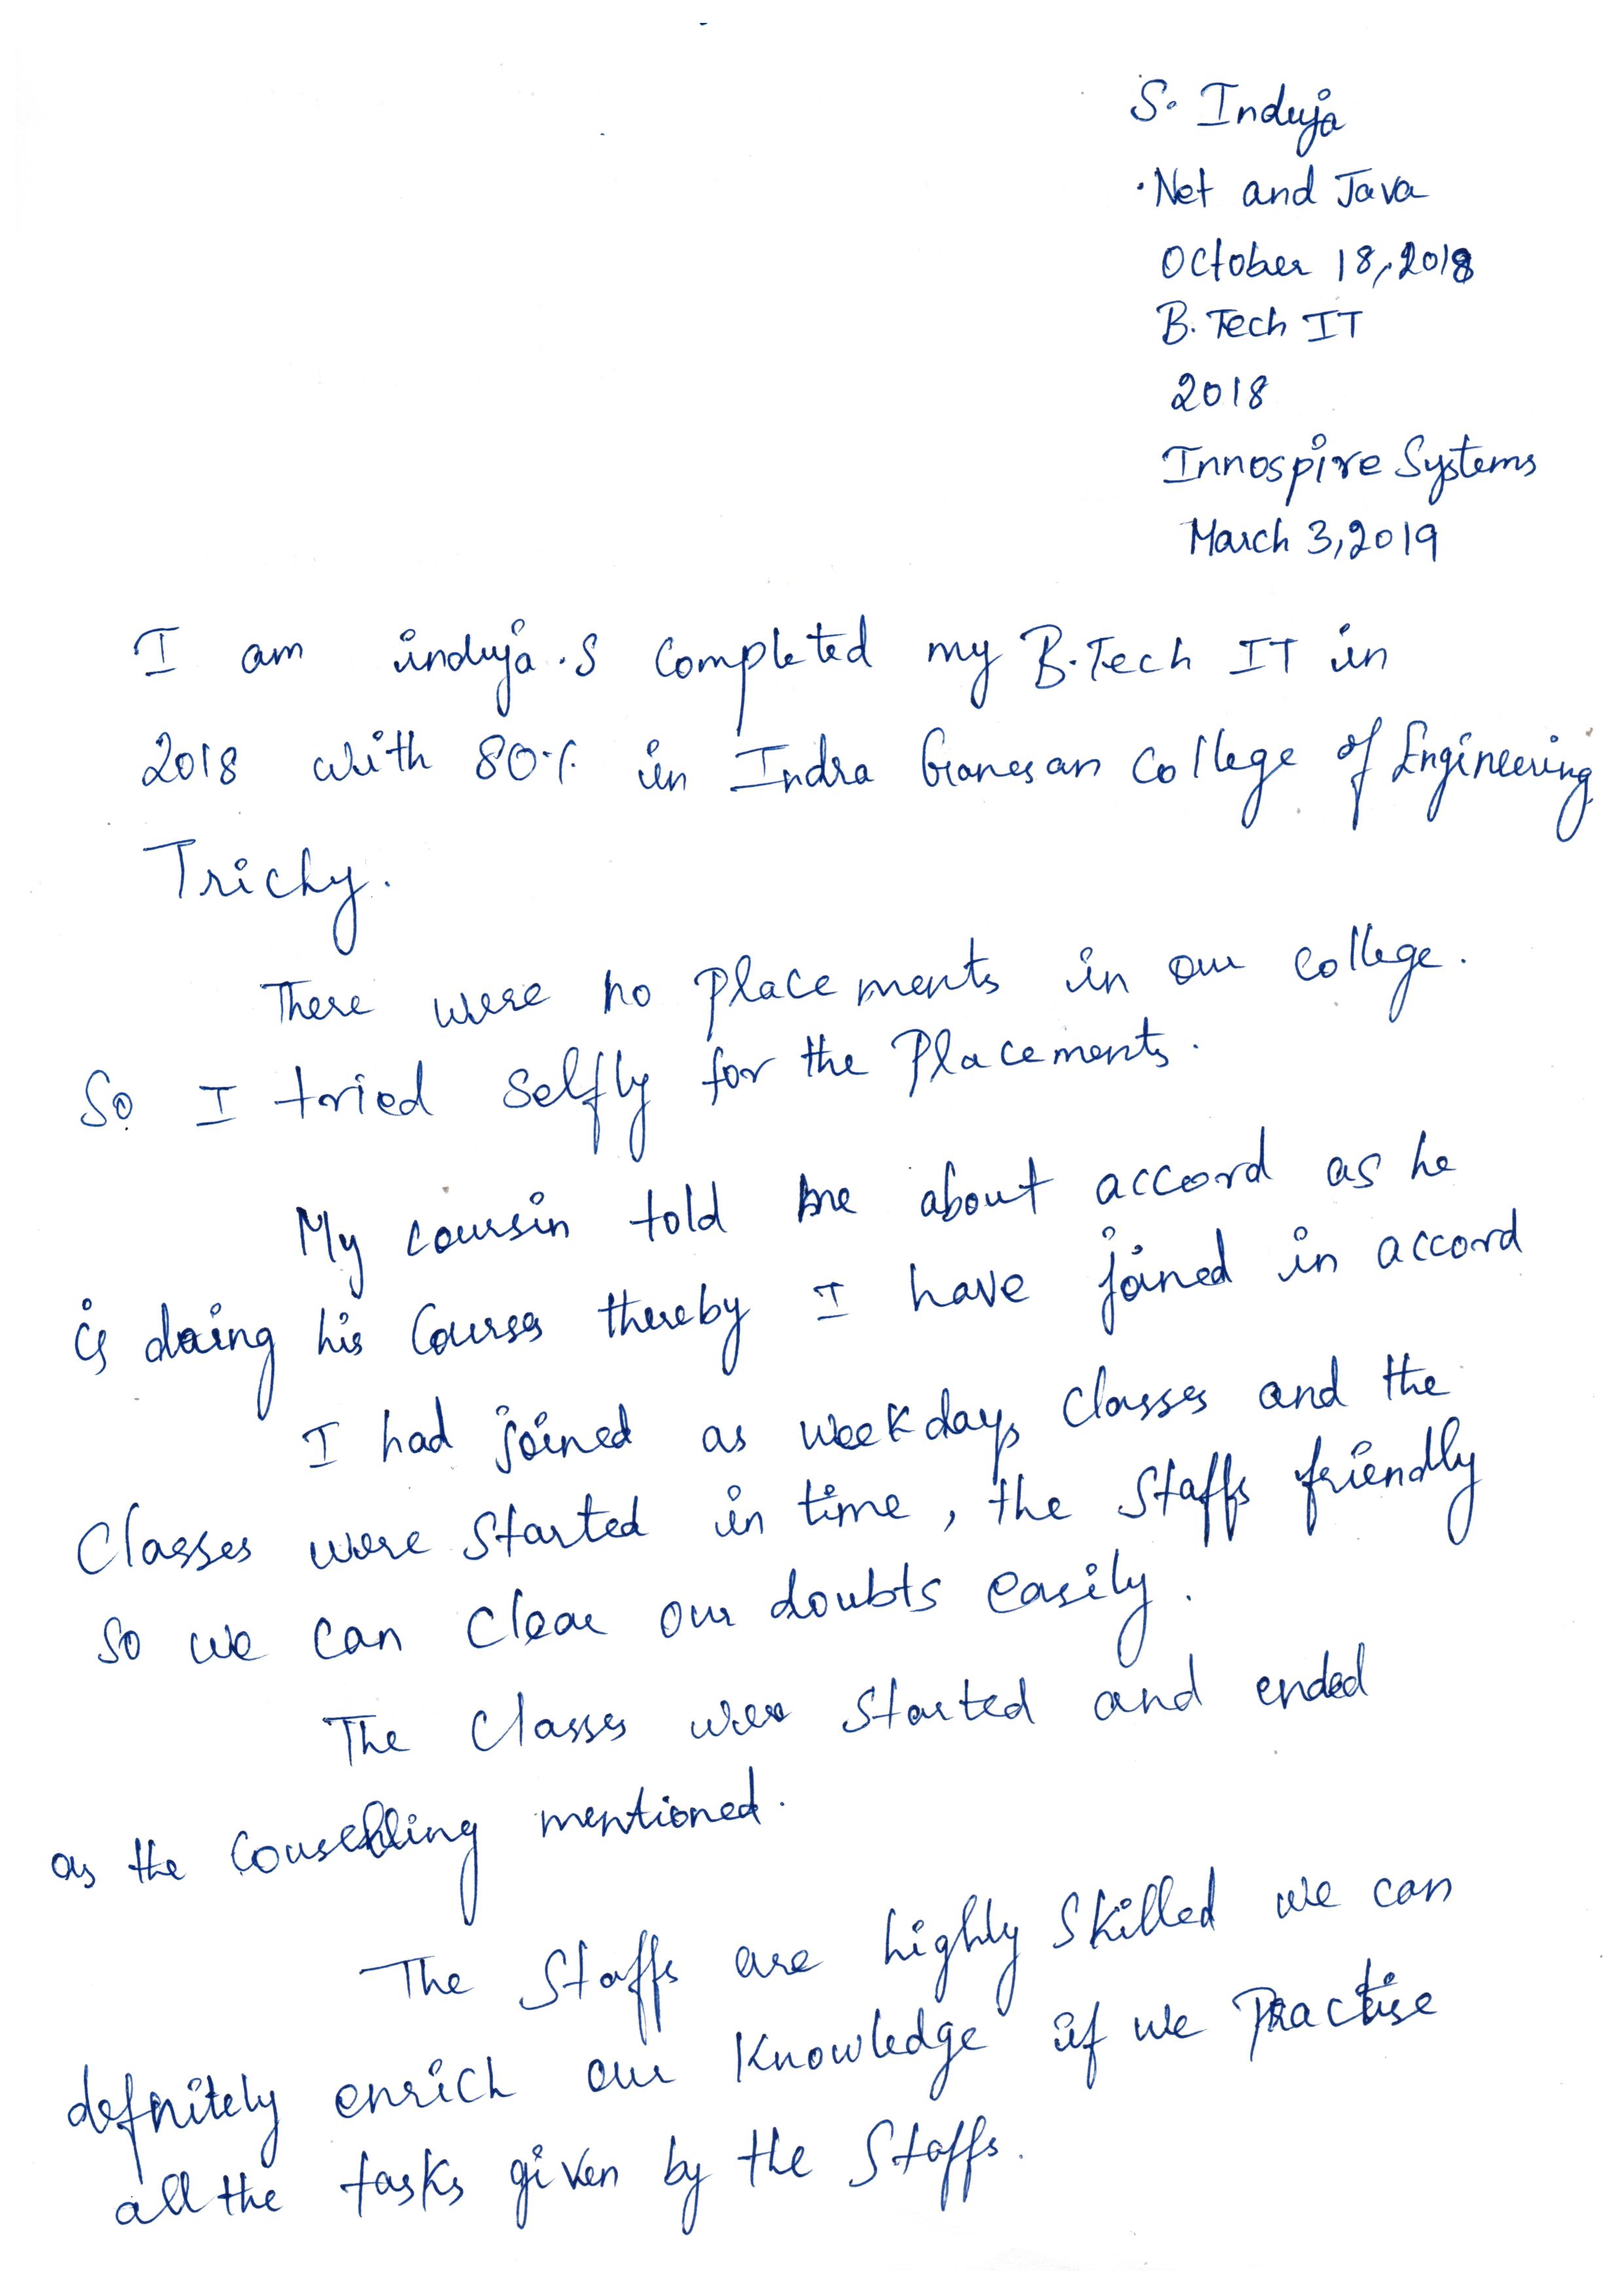 S. Induja
.Net and Java
October 18, 2018
B.Tech IT
2018
Innospire Systems
March 3, 2019
I am induja.S completed my B.Tech IT in
2018 with 80% in Indra Ganesan College of Engineering
Trichy.
There were no placements in our college.
So I tried selfly for the Placements.
My coursin told me about accord as he
is doing his Course thereby I have joined in accord
I had joined as weekdays classes and the
Classes were started in time, the Staffs friendly
So we can clear our doubts easily.
The Classes were started and ended
as the Couselling mentioned.
The Staffs are highly Skilled we can
defnitely enrich our Knowledge if we Practise
all the tasks given by the Staffs.